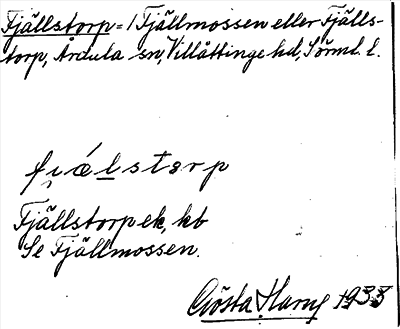 Fjällstorp = / Fjällmossen eller Fjälls-
torp, Årdala sn, Villåttinge hd, Sörml. l.
fi̯álstɘrp
Fjällstorp ek, kb
Se Fjällmossen.
Gösta Harng 1933